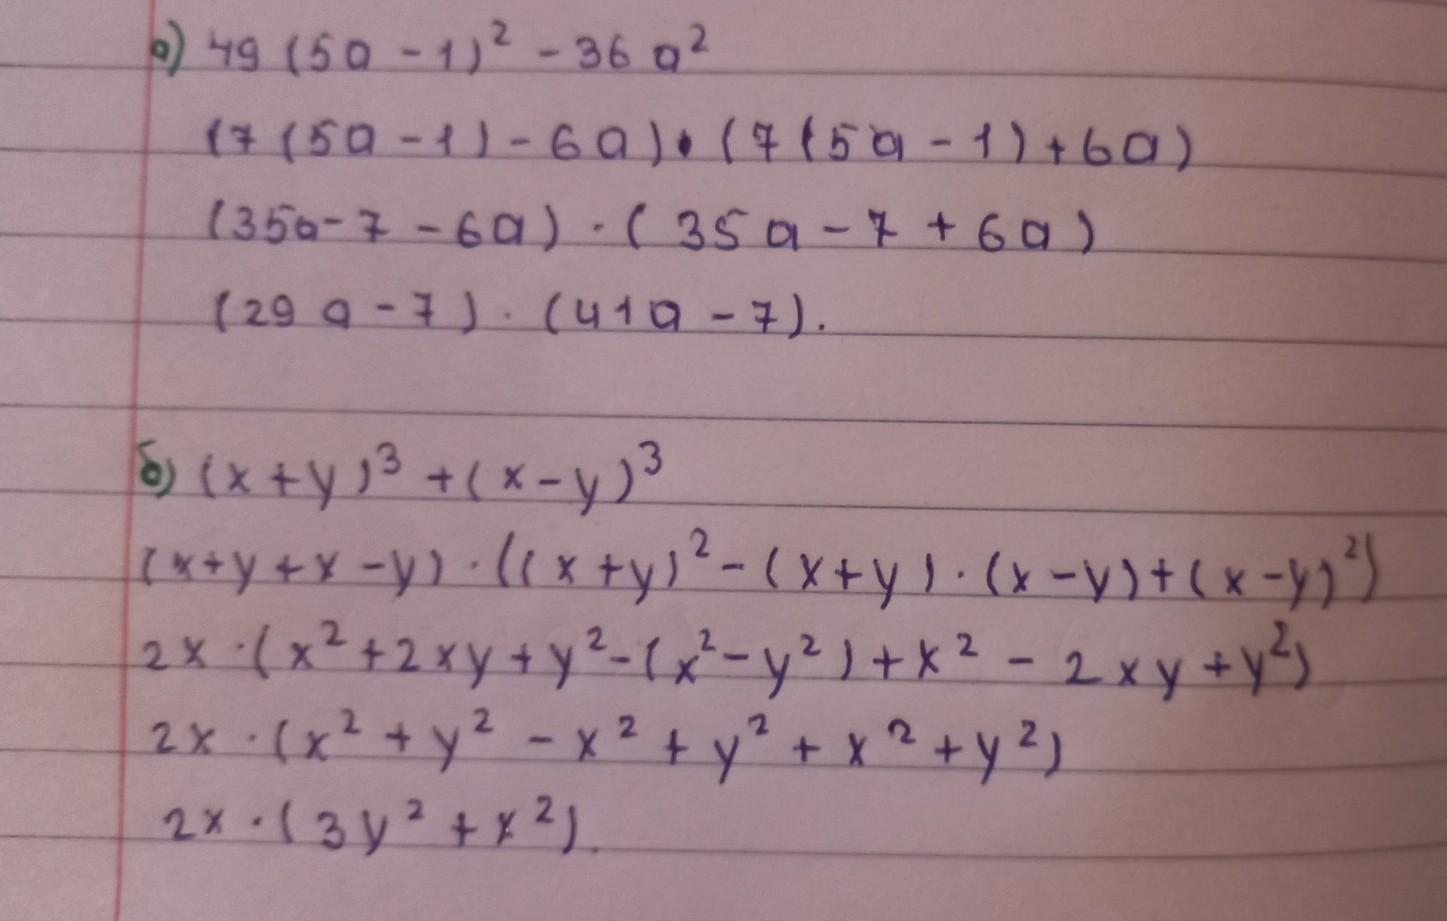 а) 49 (5a - 1)² - 36 a²
(7 (5a - 1) - 6a) · (7 (5a - 1) + 6a)
(35a - 7 - 6a) · (35a - 7 + 6a)
(29a - 7) · (41a - 7).
б) (x + y)³ + (x - y)³
(x + y + x - y) · ((x + y)² - (x + y) · (x - y) + (x - y)²)
2x · (x² + 2xy + y² - (x² - y²) + x² - 2xy + y²)
2x · (x² + y² - x² + y² + x² + y²)
2x · (3y² + x²).